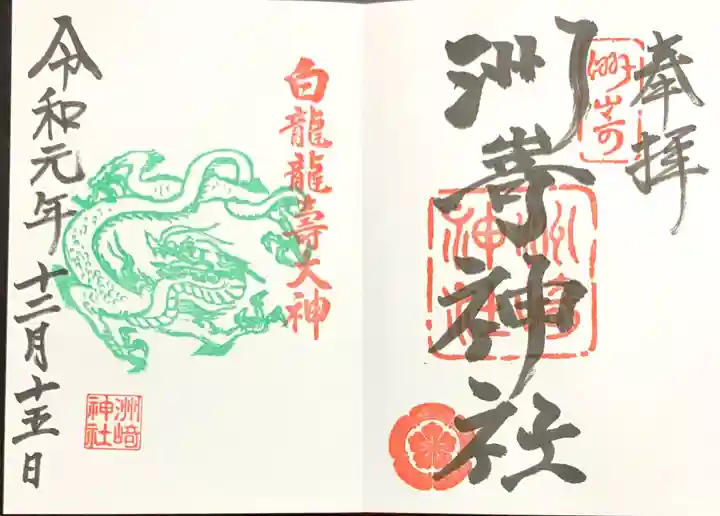 奉拝
洲崎
洲嵜神社
洲崎神社
白龍龍壽大神
令和元年十二月十五日
洲崎神社